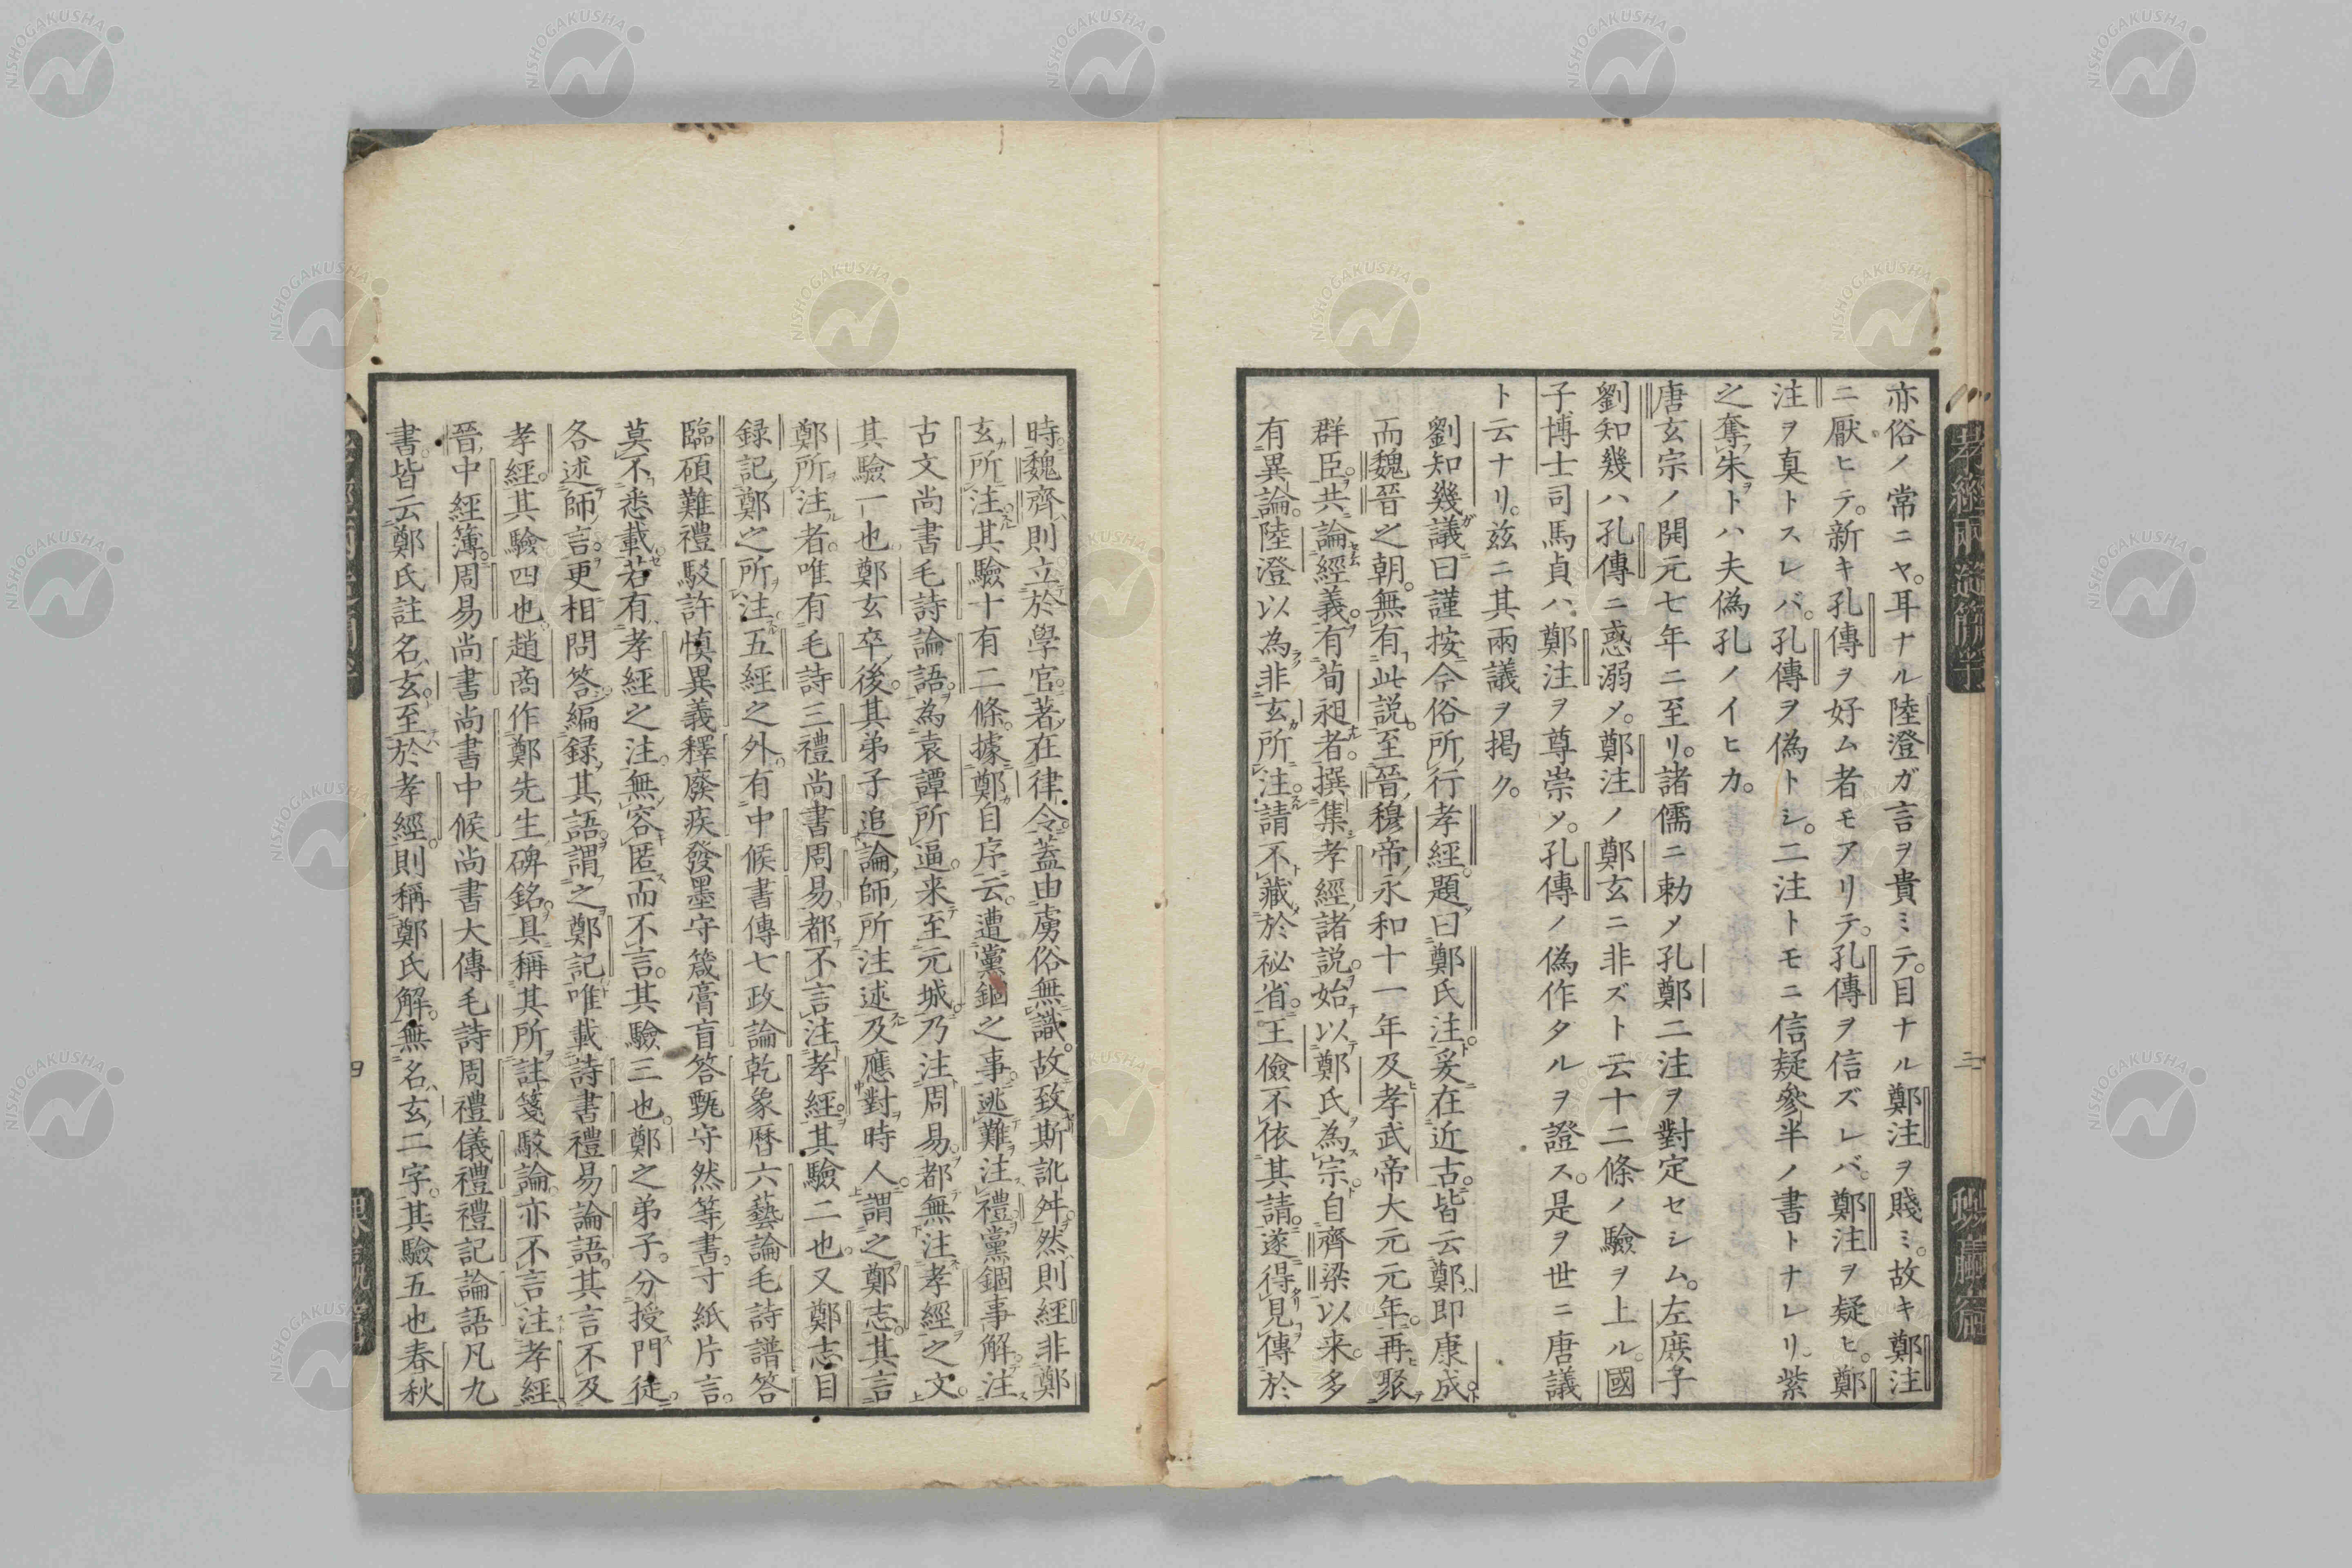 亦俗ノ常ニヤ。耳ナル陸澄ガ言ヲ貴ミテ。目ナル鄭注ヲ賤ミ。故キ鄭注
ニ厭ヒテ。新キ孔傳ヲ好ム者モアリテ。孔傳ヲ信ズレバ。鄭注ヲ疑ヒ。鄭
注ヲ真トスレバ。孔傳ヲ偽トシ。二注トモニ信疑參半ノ書トナレリ。紫
之奪朱トハ夫偽孔ノイヒカ。
唐玄宗ノ開元七年ニ至リ。諸儒ニ勅メ孔鄭二注ヲ對定セシム。左庻子
劉知幾ハ孔傳ニ惑溺メ。鄭注ノ鄭玄ニ非ズト云十二條ノ驗ヲ上ル。國
子博士司馬貞ハ鄭注ヲ尊崇メ。孔傳ノ偽作タルヲ證ス。是ヲ世ニ唐議
ト云ナリ。兹ニ其兩議ヲ掲ク。
劉知幾議曰謹按今俗所行孝經。題曰鄭氏注。爰在近古。皆云鄭即康成。
而魏晉之朝。無有此説。至晉穆帝永和十一年及孝武帝大元元年。再聚
群臣。共論經義。有荀昶者。撰集孝經諸説。始以鄭氏為宗。自齊梁以来多
有異論。陸澄以為非玄所注。請不藏於祕省。王儉不依其請。遂得見傳於
時。魏齊則立於學官。著在律令。蓋由虜俗無識。故致斯訛舛。然則經非鄭
玄所注。其驗十有二條。據鄭自序云。遭黨錮之事。逃難注禮。黨錮事解。注
古文尚書毛詩論語。為袁譚所逼。来至元城。乃注周易。都無注孝經之文。
其驗一也鄭玄卒後。其弟子追論師所注述及應對時人。謂之鄭志。其言
鄭所注者。唯有毛詩三禮尚書周易。都不言注孝經。其驗二也。又鄭志目
録記鄭之所注。五經之外。有中候書傳七政論乾象暦六藝論毛詩譜答
臨碩難禮駁許慎異義釋癈疾發墨守箴膏盲答甄守然等書。寸紙片言。
莫不悉載。若有孝經之注。無容匿而不言。其驗三也。鄭之弟子。分授門徒。
各述師言。更相問答。編録其語。謂之鄭記。唯載詩書禮易論語。其言不及
孝經。其驗四也。趙商作鄭先生碑銘。具稱其所註箋駁論。亦不言注孝經
晉中經簿。周易尚書尚書中候尚書大傳毛詩周禮儀禮禮記論語凡九
書。皆云鄭氏註名玄。至於孝經。則稱鄭氏解。無名玄二字。其驗五也春秋
孝經兩造簡孚
三
四
NISHOGAKUSHA